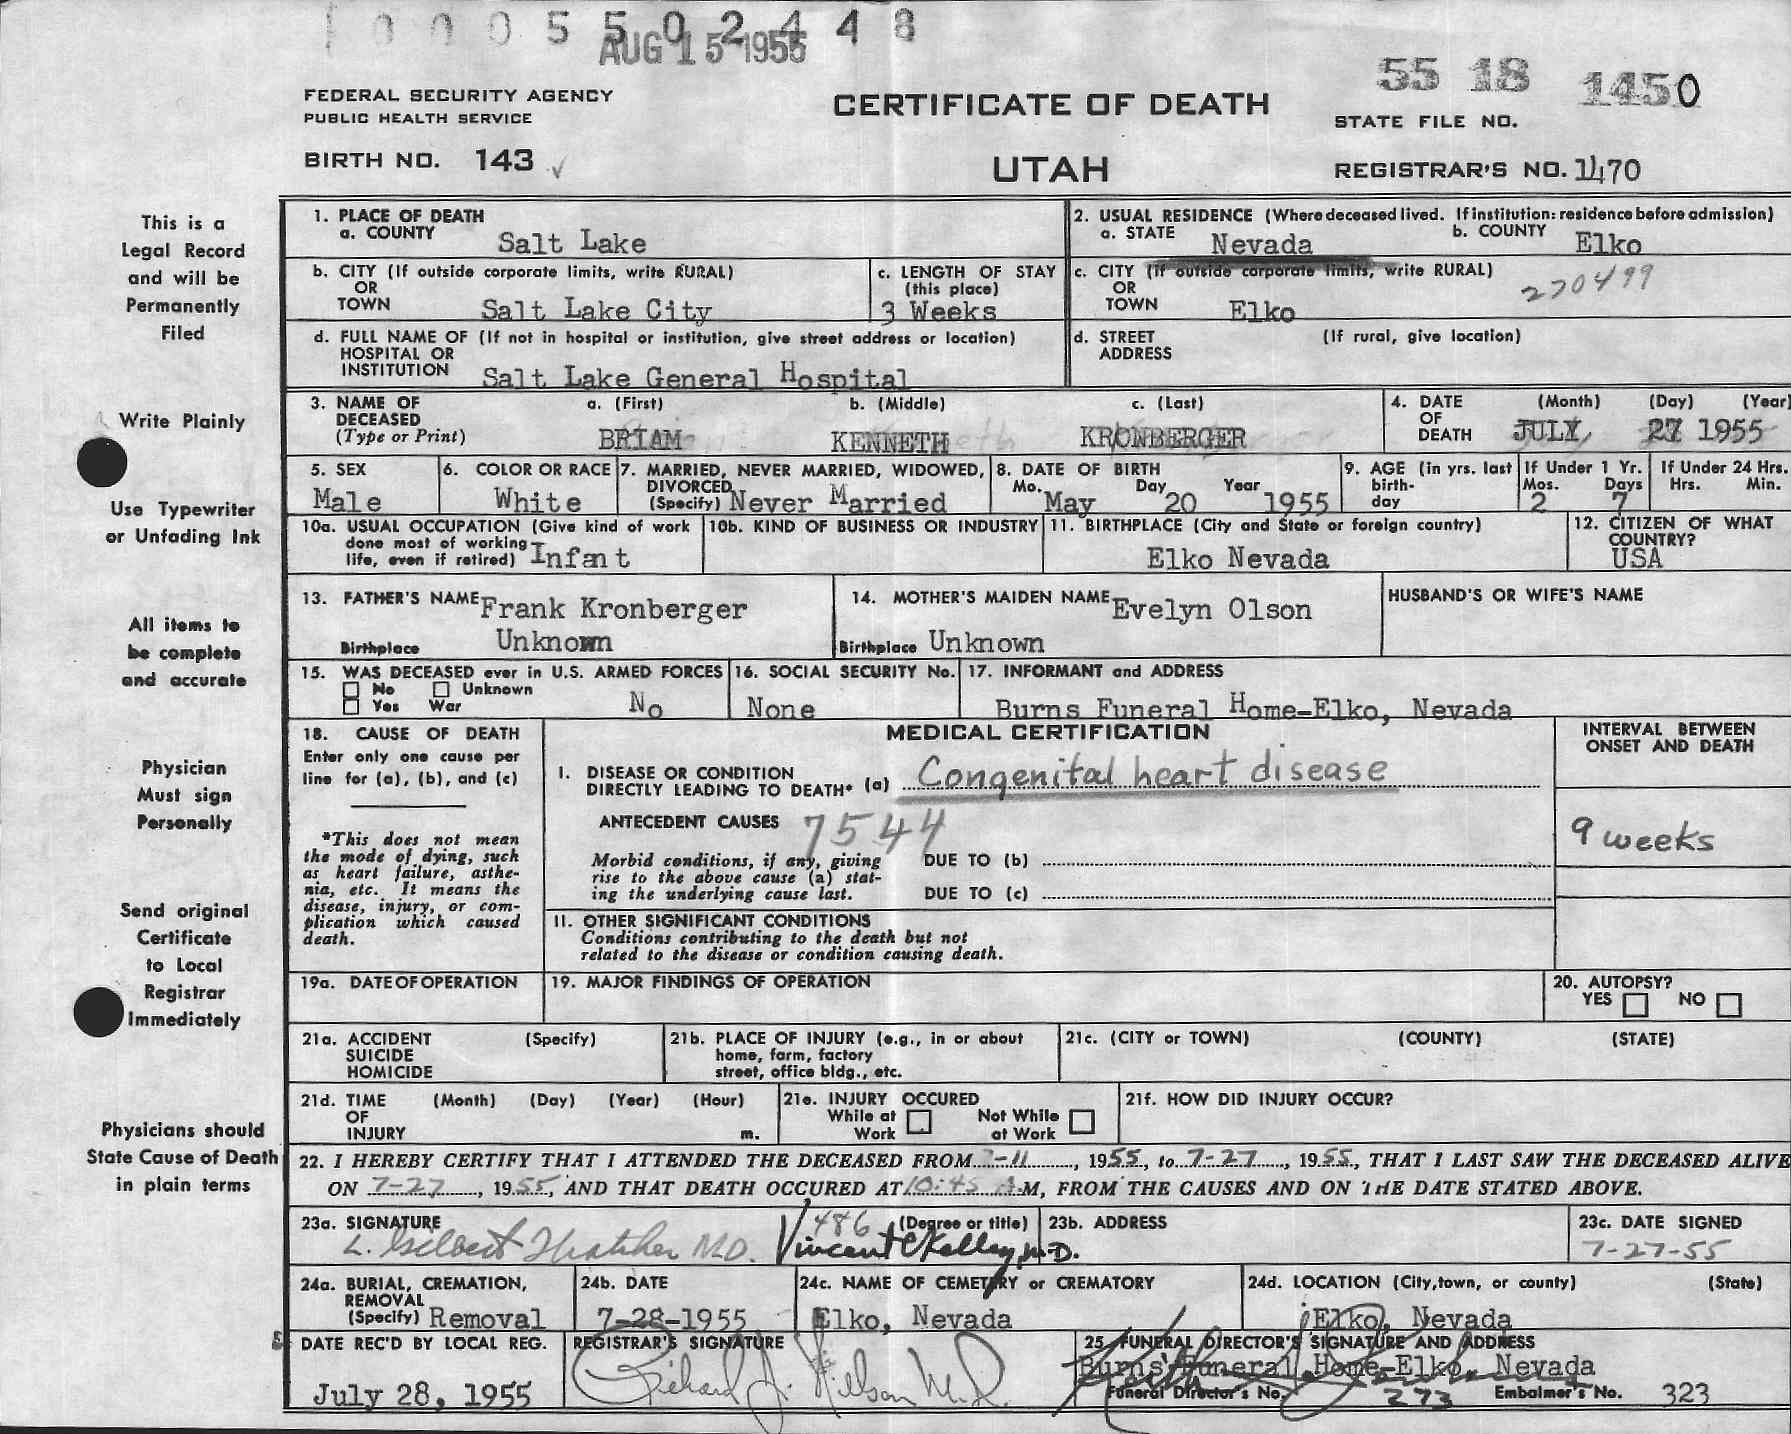 10005502448
AUG 15 1955
55 18 1450
FEDERAL SECURITY AGENCY
PUBLIC HEALTH SERVICE
CERTIFICATE OF DEATH
STATE FILE NO.
BIRTH NO. 143
UTAH
REGISTRAR'S NO. 1470
This is a
Legal Record
and will be
Permanently
Filed
Write Plainly
Use Typewriter
or Unfading Ink
All items to
be complete
and accurate
Physician
Must sign
Personally
Send original
Certificate
to Local
Registrar
Immediately
Physicians should
State Cause of Death
in plain terms
1. PLACE OF DEATH
a. COUNTY Salt Lake
2. USUAL RESIDENCE (Where deceased lived. If institution: residence before admission)
a. STATE Nevada b. COUNTY Elko
b. CITY (If outside corporate limits, write RURAL)
OR
TOWN Salt Lake City
c. LENGTH OF STAY
(this place)
3 Weeks
c. CITY (If outside corporate limits, write RURAL)
OR
TOWN Elko
270499
d. FULL NAME OF (If not in hospital or institution, give street address or location)
HOSPITAL OR
INSTITUTION Salt Lake General Hospital
d. STREET (If rural, give location)
ADDRESS
3. NAME OF a. (First) b. (Middle) c. (Last)
DECEASED
(Type or Print) BRIAM KENNETH KRONBERGER
4. DATE (Month) (Day) (Year)
OF
DEATH JULY 27 1955
5. SEX
Male
6. COLOR OR RACE
White
7. MARRIED, NEVER MARRIED, WIDOWED,
DIVORCED
(Specify) Never Married
8. DATE OF BIRTH
Mo. Day Year
May 20 1955
9. AGE (in yrs. last
birth-
day
If Under 1 Yr.
Mos. Days
2 7
If Under 24 Hrs.
Hrs. Min.
10a. USUAL OCCUPATION (Give kind of work
done most of working
life, even if retired) Infant
10b. KIND OF BUSINESS OR INDUSTRY
11. BIRTHPLACE (City and State or foreign country)
Elko Nevada
12. CITIZEN OF WHAT
COUNTRY?
USA
13. FATHER'S NAME Frank Kronberger
Birthplace Unknown
14. MOTHER'S MAIDEN NAME Evelyn Olson
Birthplace Unknown
HUSBAND'S OR WIFE'S NAME
15. WAS DECEASED ever in U.S. ARMED FORCES
No Unknown
Yes War No
16. SOCIAL SECURITY No.
None
17. INFORMANT and ADDRESS
Burns Funeral Home-Elko, Nevada
18. CAUSE OF DEATH
Enter only one cause per
line for (a), (b), and (c)
*This does not mean
the mode of dying, such
as heart failure, asthe-
nia, etc. It means the
disease, injury, or com-
plication which caused
death.
MEDICAL CERTIFICATION
I. DISEASE OR CONDITION
DIRECTLY LEADING TO DEATH* (a) Congenital heart disease
ANTECEDENT CAUSES 7544
Morbid conditions, if any, giving DUE TO (b)
rise to the above cause (a) stat-
ing the underlying cause last. DUE TO (c)
II. OTHER SIGNIFICANT CONDITIONS
Conditions contributing to the death but not
related to the disease or condition causing death.
INTERVAL BETWEEN
ONSET AND DEATH
9 weeks
19a. DATE OF OPERATION
19. MAJOR FINDINGS OF OPERATION
20. AUTOPSY?
YES NO
21a. ACCIDENT (Specify)
SUICIDE
HOMICIDE
21b. PLACE OF INJURY (e.g., in or about
home, farm, factory
street, office bldg., etc.
21c. (CITY or TOWN) (COUNTY) (STATE)
21d. TIME (Month) (Day) (Year) (Hour)
OF
INJURY m.
21e. INJURY OCCURED
While at Not While
Work at Work
21f. HOW DID INJURY OCCUR?
22. I HEREBY CERTIFY THAT I ATTENDED THE DECEASED FROM 7-11, 1955, to 7-27, 1955, THAT I LAST SAW THE DECEASED ALIVE
ON 7-27, 1955, AND THAT DEATH OCCURED AT 10:45 A.M, FROM THE CAUSES AND ON THE DATE STATED ABOVE.
23a. SIGNATURE 486 (Degree or title)
L. Gilbert Thatcher M.D. Vincent C Kelley M.D.
23b. ADDRESS
23c. DATE SIGNED
7-27-55
24a. BURIAL, CREMATION,
REMOVAL
(Specify) Removal
24b. DATE
7-28-1955
24c. NAME OF CEMETERY or CREMATORY
Elko, Nevada
24d. LOCATION (City, town, or county) (State)
Elko, Nevada
DATE REC'D BY LOCAL REG.
July 28, 1955
REGISTRAR'S SIGNATURE
Richard J. Nelson M.D.
25. FUNERAL DIRECTOR'S SIGNATURE AND ADDRESS
Burns Funeral Home-Elko, Nevada
Funeral Director's No. 273 Embalmer's No. 323